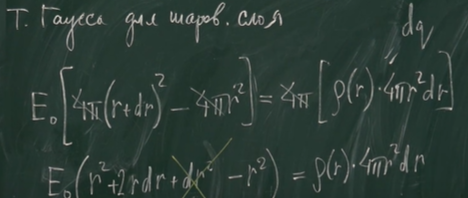 Т. Гаусса для шаров. слоя
dq
E₀[4π(r+dr)² − 4πr²] = 4π[ρ(r)·4πr²dr]
E₀(r²+2rdr+dr² − r²) = ρ(r)·4πr²dr